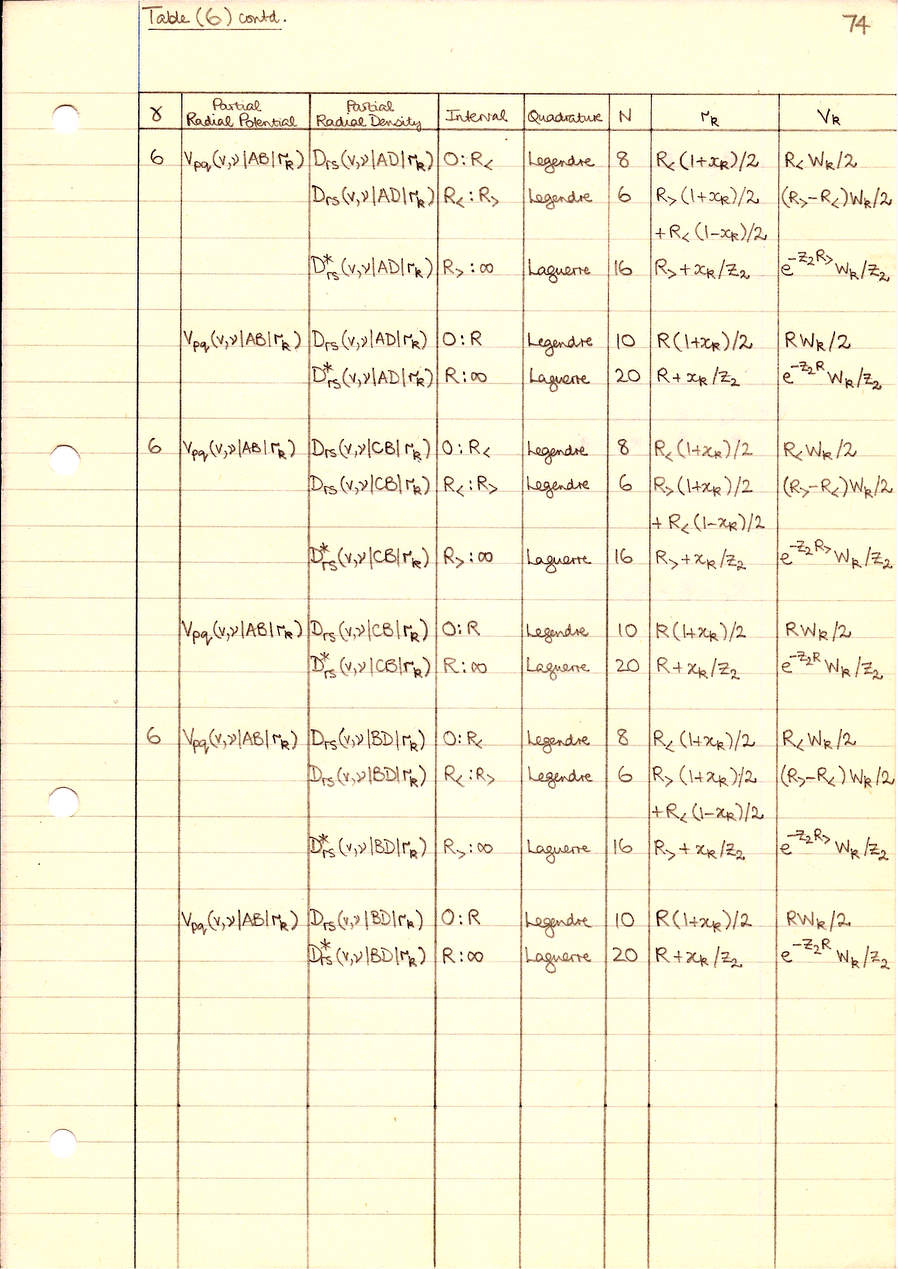 Table (6) contd.
74
γ | Partial Radial Potential | Partial Radial Density | Interval | Quadrature | N | r_R | V_R
6 | V_pq(v,ν|AB|r_R) | D_rs(v,ν|AD|r_R) | 0:R_< | Legendre | 8 | R_<(1+x_R)/2 | R_< W_R/2
D_rs(v,ν|AD|r_R) | R_<:R_> | Legendre | 6 | R_>(1+x_R)/2 | (R_>-R_<)W_R/2
+R_<(1-x_R)/2
D*_rs(v,ν|AD|r_R) | R_>:∞ | Laguerre | 16 | R_>+x_R/z_2 | e^{-z_2R_>} W_R/z_2
V_pq(v,ν|AB|r_R) | D_rs(v,ν|AD|r_R) | 0:R | Legendre | 10 | R(1+x_R)/2 | RW_R/2
D*_rs(v,ν|AD|r_R) | R:∞ | Laguerre | 20 | R+x_R/z_2 | e^{-z_2R} W_R/z_2
6 | V_pq(v,ν|AB|r_R) | D_rs(v,ν|CB|r_R) | 0:R_< | Legendre | 8 | R_<(1+x_R)/2 | R_<W_R/2
D_rs(v,ν|CB|r_R) | R_<:R_> | Legendre | 6 | R_>(1+x_R)/2 | (R_>-R_<)W_R/2
+R_<(1-x_R)/2
D*_rs(v,ν|CB|r_R) | R_>:∞ | Laguerre | 16 | R_>+x_R/z_2 | e^{-z_2R_>} W_R/z_2
V_pq(v,ν|AB|r_R) | D_rs(v,ν|CB|r_R) | 0:R | Legendre | 10 | R(1+x_R)/2 | RW_R/2
D*_rs(v,ν|CB|r_R) | R:∞ | Laguerre | 20 | R+x_R/z_2 | e^{-z_2R} W_R/z_2
6 | V_pq(v,ν|AB|r_R) | D_rs(v,ν|BD|r_R) | 0:R_< | Legendre | 8 | R_<(1+x_R)/2 | R_<W_R/2
D_rs(v,ν|BD|r_R) | R_<:R_> | Legendre | 6 | R_>(1+x_R)/2 | (R_>-R_<)W_R/2
+R_<(1-x_R)/2
D*_rs(v,ν|BD|r_R) | R_>:∞ | Laguerre | 16 | R_>+x_R/z_2 | e^{-z_2R_>} W_R/z_2
V_pq(v,ν|AB|r_R) | D_rs(v,ν|BD|r_R) | 0:R | Legendre | 10 | R(1+x_R)/2 | RW_R/2
D*_rs(v,ν|BD|r_R) | R:∞ | Laguerre | 20 | R+x_R/z_2 | e^{-z_2R} W_R/z_2